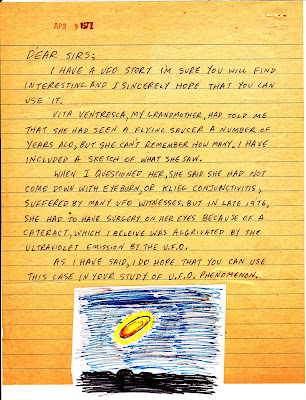 APR 5 1977
DEAR SIRS;
I HAVE A UFO STORY I'M SURE YOU WILL FIND
INTERESTING AND I SINCERELY HOPE THAT YOU CAN
USE IT.
VITA VENTRESCA, MY GRANDMOTHER, HAD TOLD ME
THAT SHE HAD SEEN A FLYING SAUCER A NUMBER OF
YEARS AGO, BUT SHE CAN'T REMEMBER HOW MANY. I HAVE
INCLUDED A SKETCH OF WHAT SHE SAW.
WHEN I QUESTIONED HER, SHE SAID SHE HAD NOT
COME DOWN WITH EYEBURN, OR KLIEG CONJUNCTIVITIS,
SUFFERED BY MANY UFO WITNESSES. BUT IN LATE 1976,
SHE HAD TO HAVE SURGERY ON HER EYES BECAUSE OF A
CATERACT, WHICH I BELEIVE WAS AGGRIVATED BY THE
ULTRAVIOLET EMISSION BY THE U.F.O.
AS I HAVE SAID, I DO HOPE THAT YOU CAN USE
THIS CASE IN YOUR STUDY OF U.F.O. PHENOMENON.